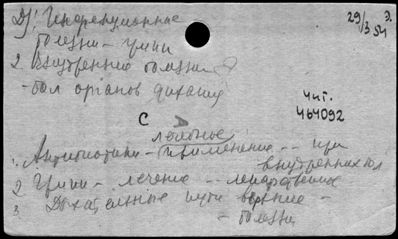 Д) Инфекционные
болезни - грипп
29/3 54 Э.
2. Внутренние болезни
- бол органов дыхания
чит.
464092
С А
лечебное
1. Антибиотики - применение -- при
внутренних бол
2 Грипп - лечение -- лекарственное
3 Дыхательные пути верхние -
- болезни